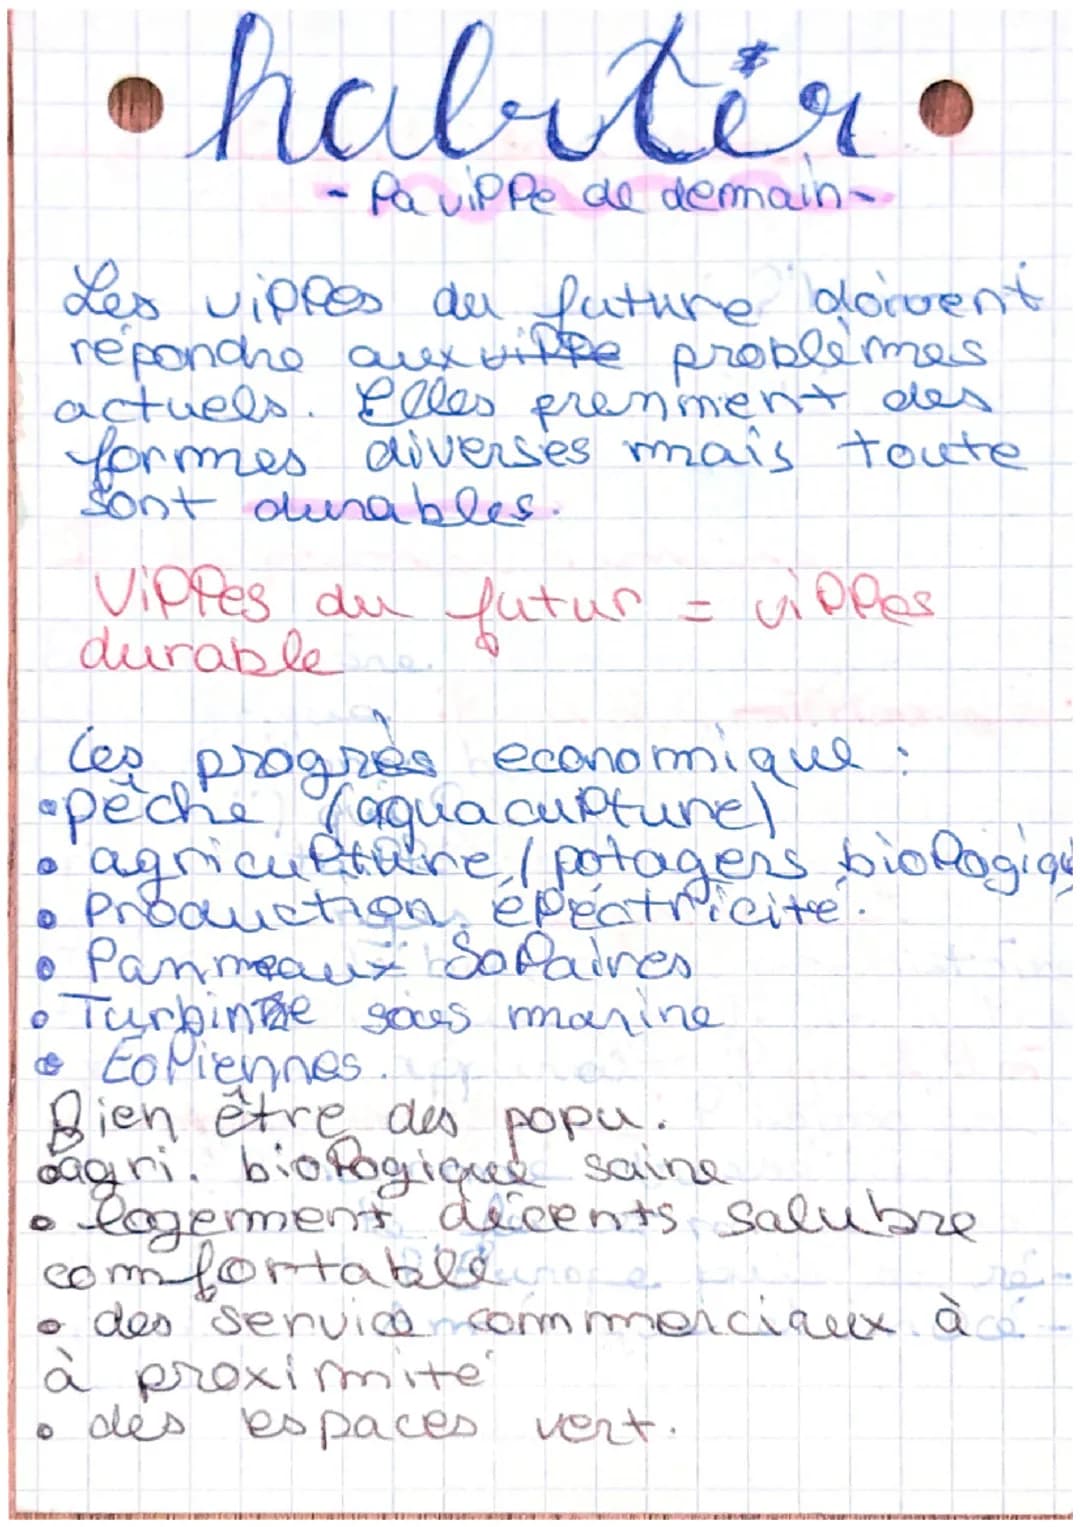 habiter
- la ville de demain -
Les villes du future doivent
répondre aux ville problèmes
actuels. Elles prennent des
formes diverses mais toute
sont durables.
Villes du futur = villes
durable
les progrès economique :
• pêche (aquaculture)
• agriculture / potagers biologiqu
• Production éléctricité.
• Panneaux Solaires
• Turbine sous marine
• Eoliennes.
Bien être des popu.
• agri. biologique saine
• logement décents salubre
comfortable
• des service commerciaux à
à proximité
• des espaces vert.